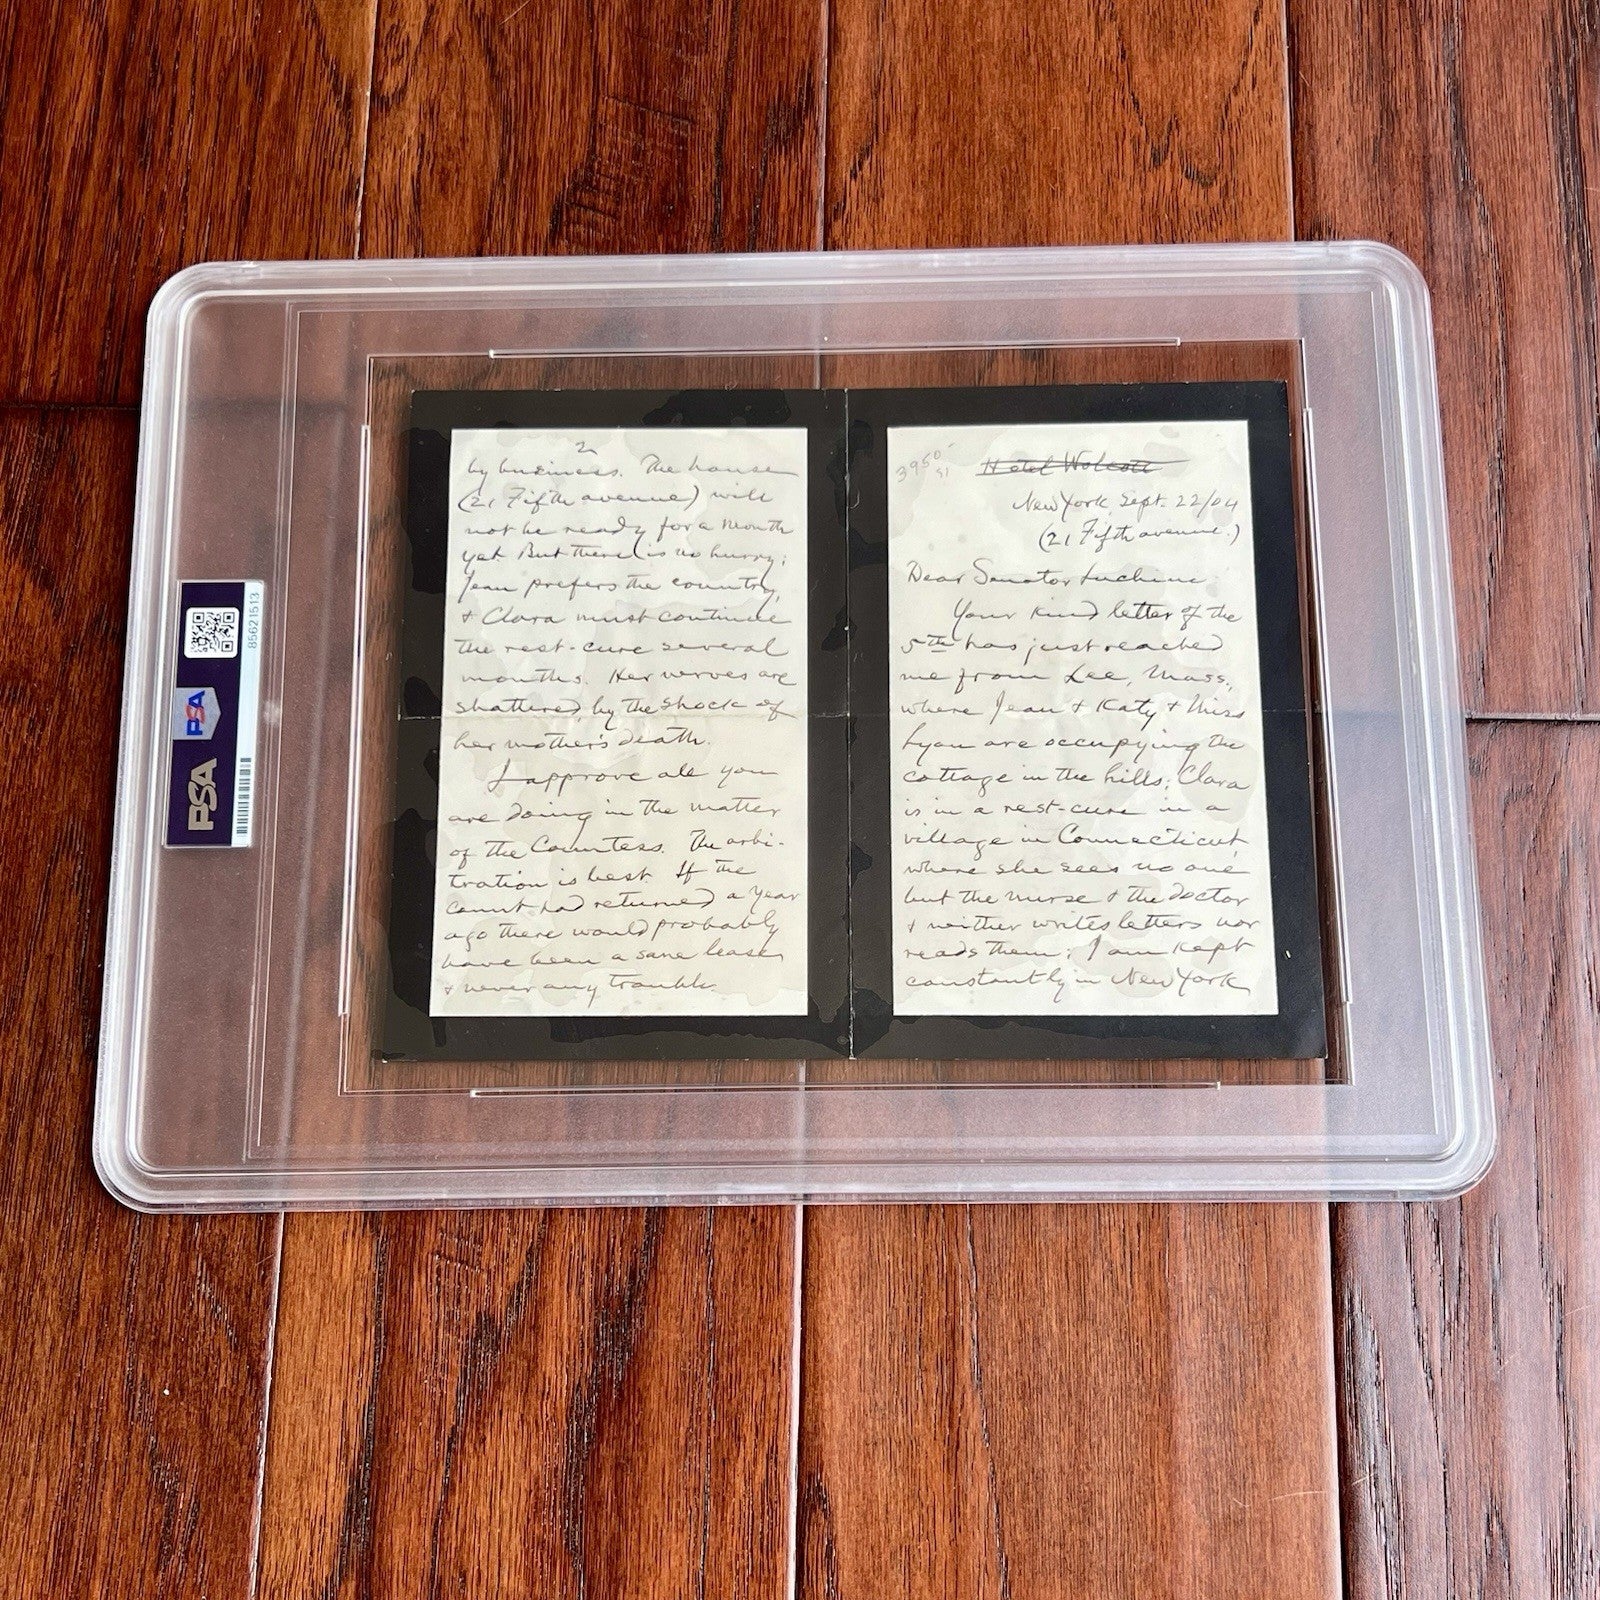 3950
91
Hotel Wolcott
New York, Sept. 22/04
(21 Fifth avenue.)
Dear Senator Luchini:
Your kind letter of the
5th has just reached
me from Lee, Mass.,
where Jean & Katy & Miss
Lyon are occupying the
cottage in the hills; Clara
is in a rest-cure in a
village in Connecticut,
where she sees no one
but the nurse & the doctor
& neither writes letters nor
reads them; I am kept
constantly in New York
2
by business. The house
(21 Fifth avenue) will
not be ready for a month
yet. But there is no hurry;
Jean prefers the country,
& Clara must continue
the rest-cure several
months. Her nerves are
shattered, by the shock of
her mother's death.
I approve all you
are doing in the matter
of the Countess. The arbi-
tration is best. If the
Count had returned a year
ago there would probably
have been a sane lease,
& never any trouble.
PSA
PSA
85621513